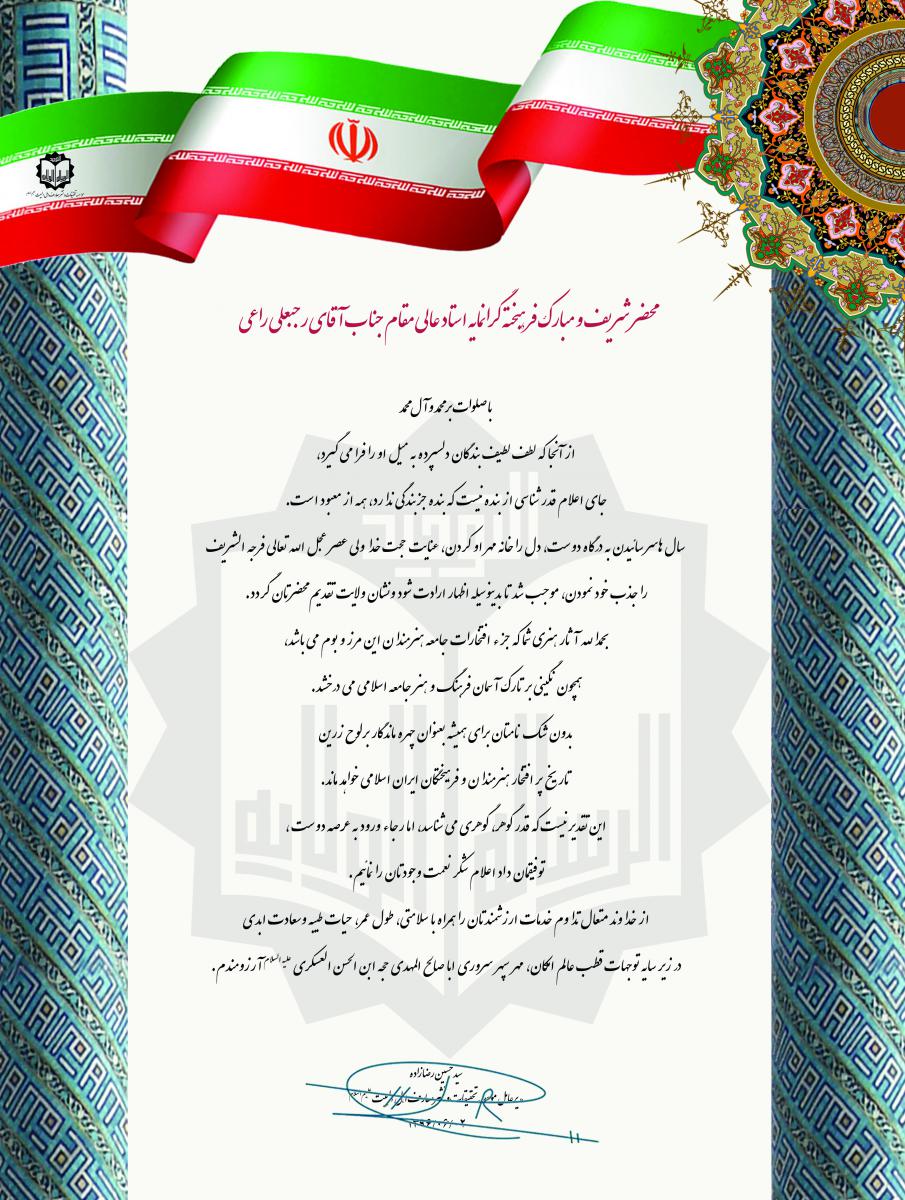 محضر شریف و مبارک فرهیخته گرانمایه استاد عالی مقام جناب آقای رجبعلی راعی
با صلوات بر محمد و آل محمد
از آنجا که لطف لطیف بندگان دلسپرده به میل او را فرا می گیرد،
جای اعلام قدر شناسی از بنده نیست که بنده جز بندگی ندارد، همه از معبود است.
سال ها سر سائیدن به درگاه دوست، دل را خانه مهر او کردن، عنایت حجت خدا ولی عصر عجل الله تعالی فرجه الشریف
را جذب خود نمودن، موجب شد تا بدینوسیله اظهار ارادت شود و نشان ولایت تقدیم محضرتان گردد.
بحمدالله آثار هنری شما که جزء افتخارات جامعه هنرمندان این مرز و بوم می باشد،
همچون نگینی بر تارک آسمان فرهنگ و هنر جامعه اسلامی می درخشد.
بدون شک نامتان برای همیشه بعنوان چهره ماندگار بر لوح زرین
تاریخ پر افتخار هنرمندان و فرهیختگان ایران اسلامی خواهد ماند.
این تقدیر نیست که قدر گوهر، گوهری می شناسد، اما رجاء ورود به عرصه دوست،
توفیقمان داد اعلام شکر نعمت وجودتان را نمائیم.
از خداوند متعال تداوم خدمات ارزشمندتان را همراه با سلامتی، طول عمر، حیات طیبه و سعادت ابدی
در زیر سایه توجهات قطب عالم امکان، مهر سپهر سروری ابا صالح المهدی حجه ابن الحسن العسکری علیه السلام آرزومندم.
سید حسین رضازاده
مدیرعامل موسسه تحقیقات و نشر معارف اهل البیت